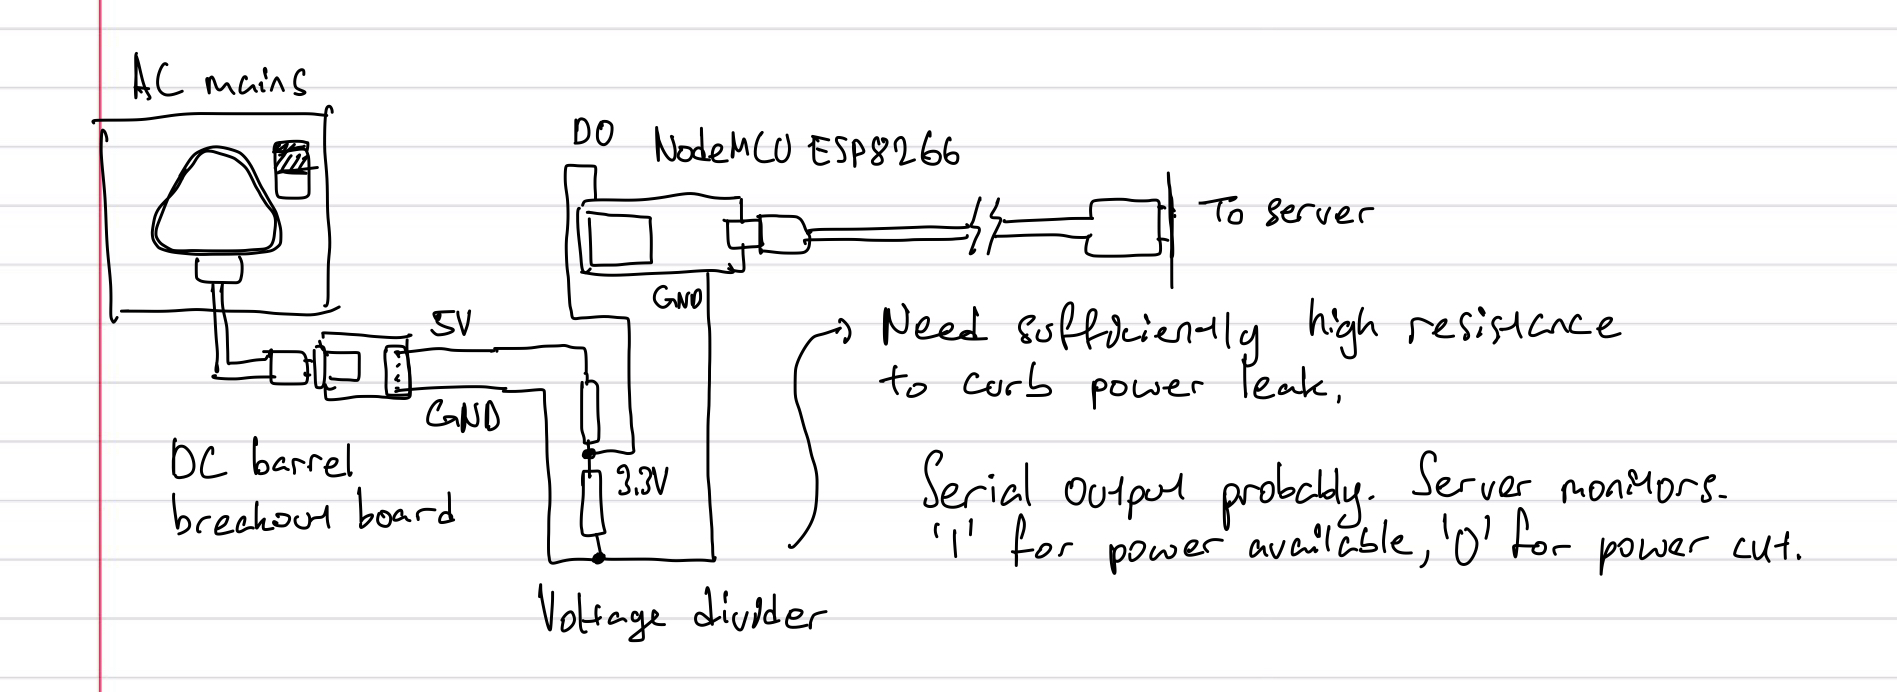 AC mains
D0
NodeMCU ESP8266
To server
GND
5V
GND
Need sufficiently high resistance
to curb power leak.
DC barrel
breakout board
3.3V
Serial output probably. Server monitors.
'1' for power available, '0' for power cut.
Voltage divider